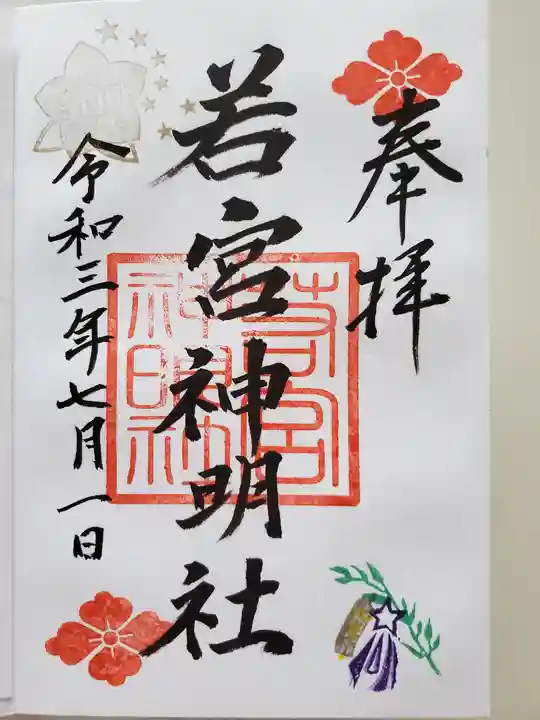 奉拝
若宮神明社
若宮
神明社
令和三年七月一日